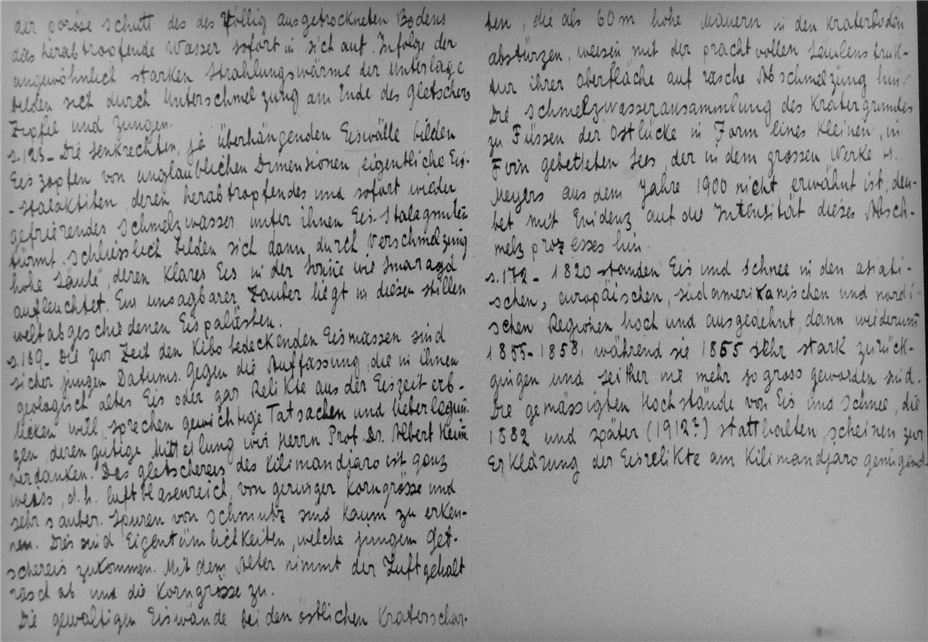 der poröse schutt des des völlig ausgetrockneten Bodens
das herabtropfende Wasser sofort in sich auf. Infolge der
ungewöhnlich starken Strahlungswärme der Unterlage
bilden sich durch Unterschmelzung am Ende des Gletschers
Zipfel und Zungen.
s.123- Die senkrechten, ja überhängenden Eiswälle bilden
Eiszapfen von unglaublichen Dimensionen, eigentliche Eis-
-stalaktiten deren herabtropfendes und sofort wieder
gefrierendes Schmelzwasser unter ihnen Eis-Stalagmiten
türmt. Schliesslich bilden sich dann durch Verschmelzung
hohe Säule, deren klares Eis in der Sonne wie Smaragd
aufleuchtet. Ein unsagbarer Zauber liegt in diesen stillen
weltabgeschiedenen Eispalästen.
s.139- Die zur Zeit den Kibo bedeckenden Eismassen sind
sicher jungen Datums. Gegen die Auffassung, die in ihnen
geologisch altes Eis oder gar Relikte aus der Eiszeit erb-
licken will, sprechen gewichtige Tatsachen und Ueberlegun
gen deren gütige Mitteilung wir Herrn Prof. Dr. Albert Heim
verdanken. Das Gletschereis des Kilimandjaro ist ganz
weiss, d.h. luftblasenreich, von geringer Korngrösse und
sehr sauber. Spuren von Schmutz sind kaum zu erken-
nen. Dies sind Eigentümlichkeiten, welche jungem Glet-
schereis zukommen. Mit dem Alter nimmt der Luftgehalt
rasch ab und die Korngrösse zu.
Die gewaltigen Eiswände bei den östlichen Kraterschar-
ten, die als 60m hohe Mauern in den Kraterboden
abstürzen, weisen mit der prachtvollen Säulenstruk-
tur ihrer Oberfläche auf rasche Abschmelzung hin.
Die Schmelzwasseransammlung des Kratergrundes
zu Füssen der Ostlücke in Form eines kleinen, in
Firn gebetteten Sees, der in dem grossen Werke H.
Meyers aus dem Jahre 1900 nicht erwähnt ist, deu-
tet mit Evidenz auf die Intensität dieses Absch-
melzprozesses hin.
s.172- 1820 standen Eis und Schnee in den asiati-
schen, europäischen, südamerikanischen und nordi-
schen Regionen hoch und ausgedehnt, dann wiederum
1855-1858, während sie 1865 sehr stark zurück-
gingen und seither nie mehr so gross geworden sind.
Die gemässigten Hochstände von Eis und Schnee, die
1882 und später (1912?) statthalten, scheinen zur
Erklärung der Eisrelikte am Kilimandjaro genügend